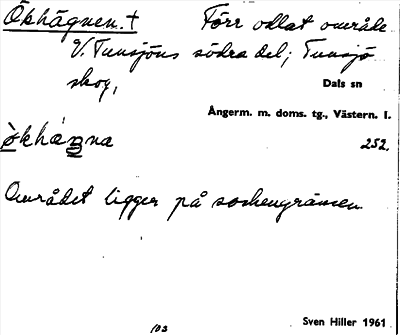 Ökhägnen. † Förr odlat område
V. Tunsjöns södra del; Tunsjö
skog,
Dals sn
Ångerm. m. doms. tg., Västern. l.
252.
Området ligger på sockengränsen
103
Sven Hiller 1961